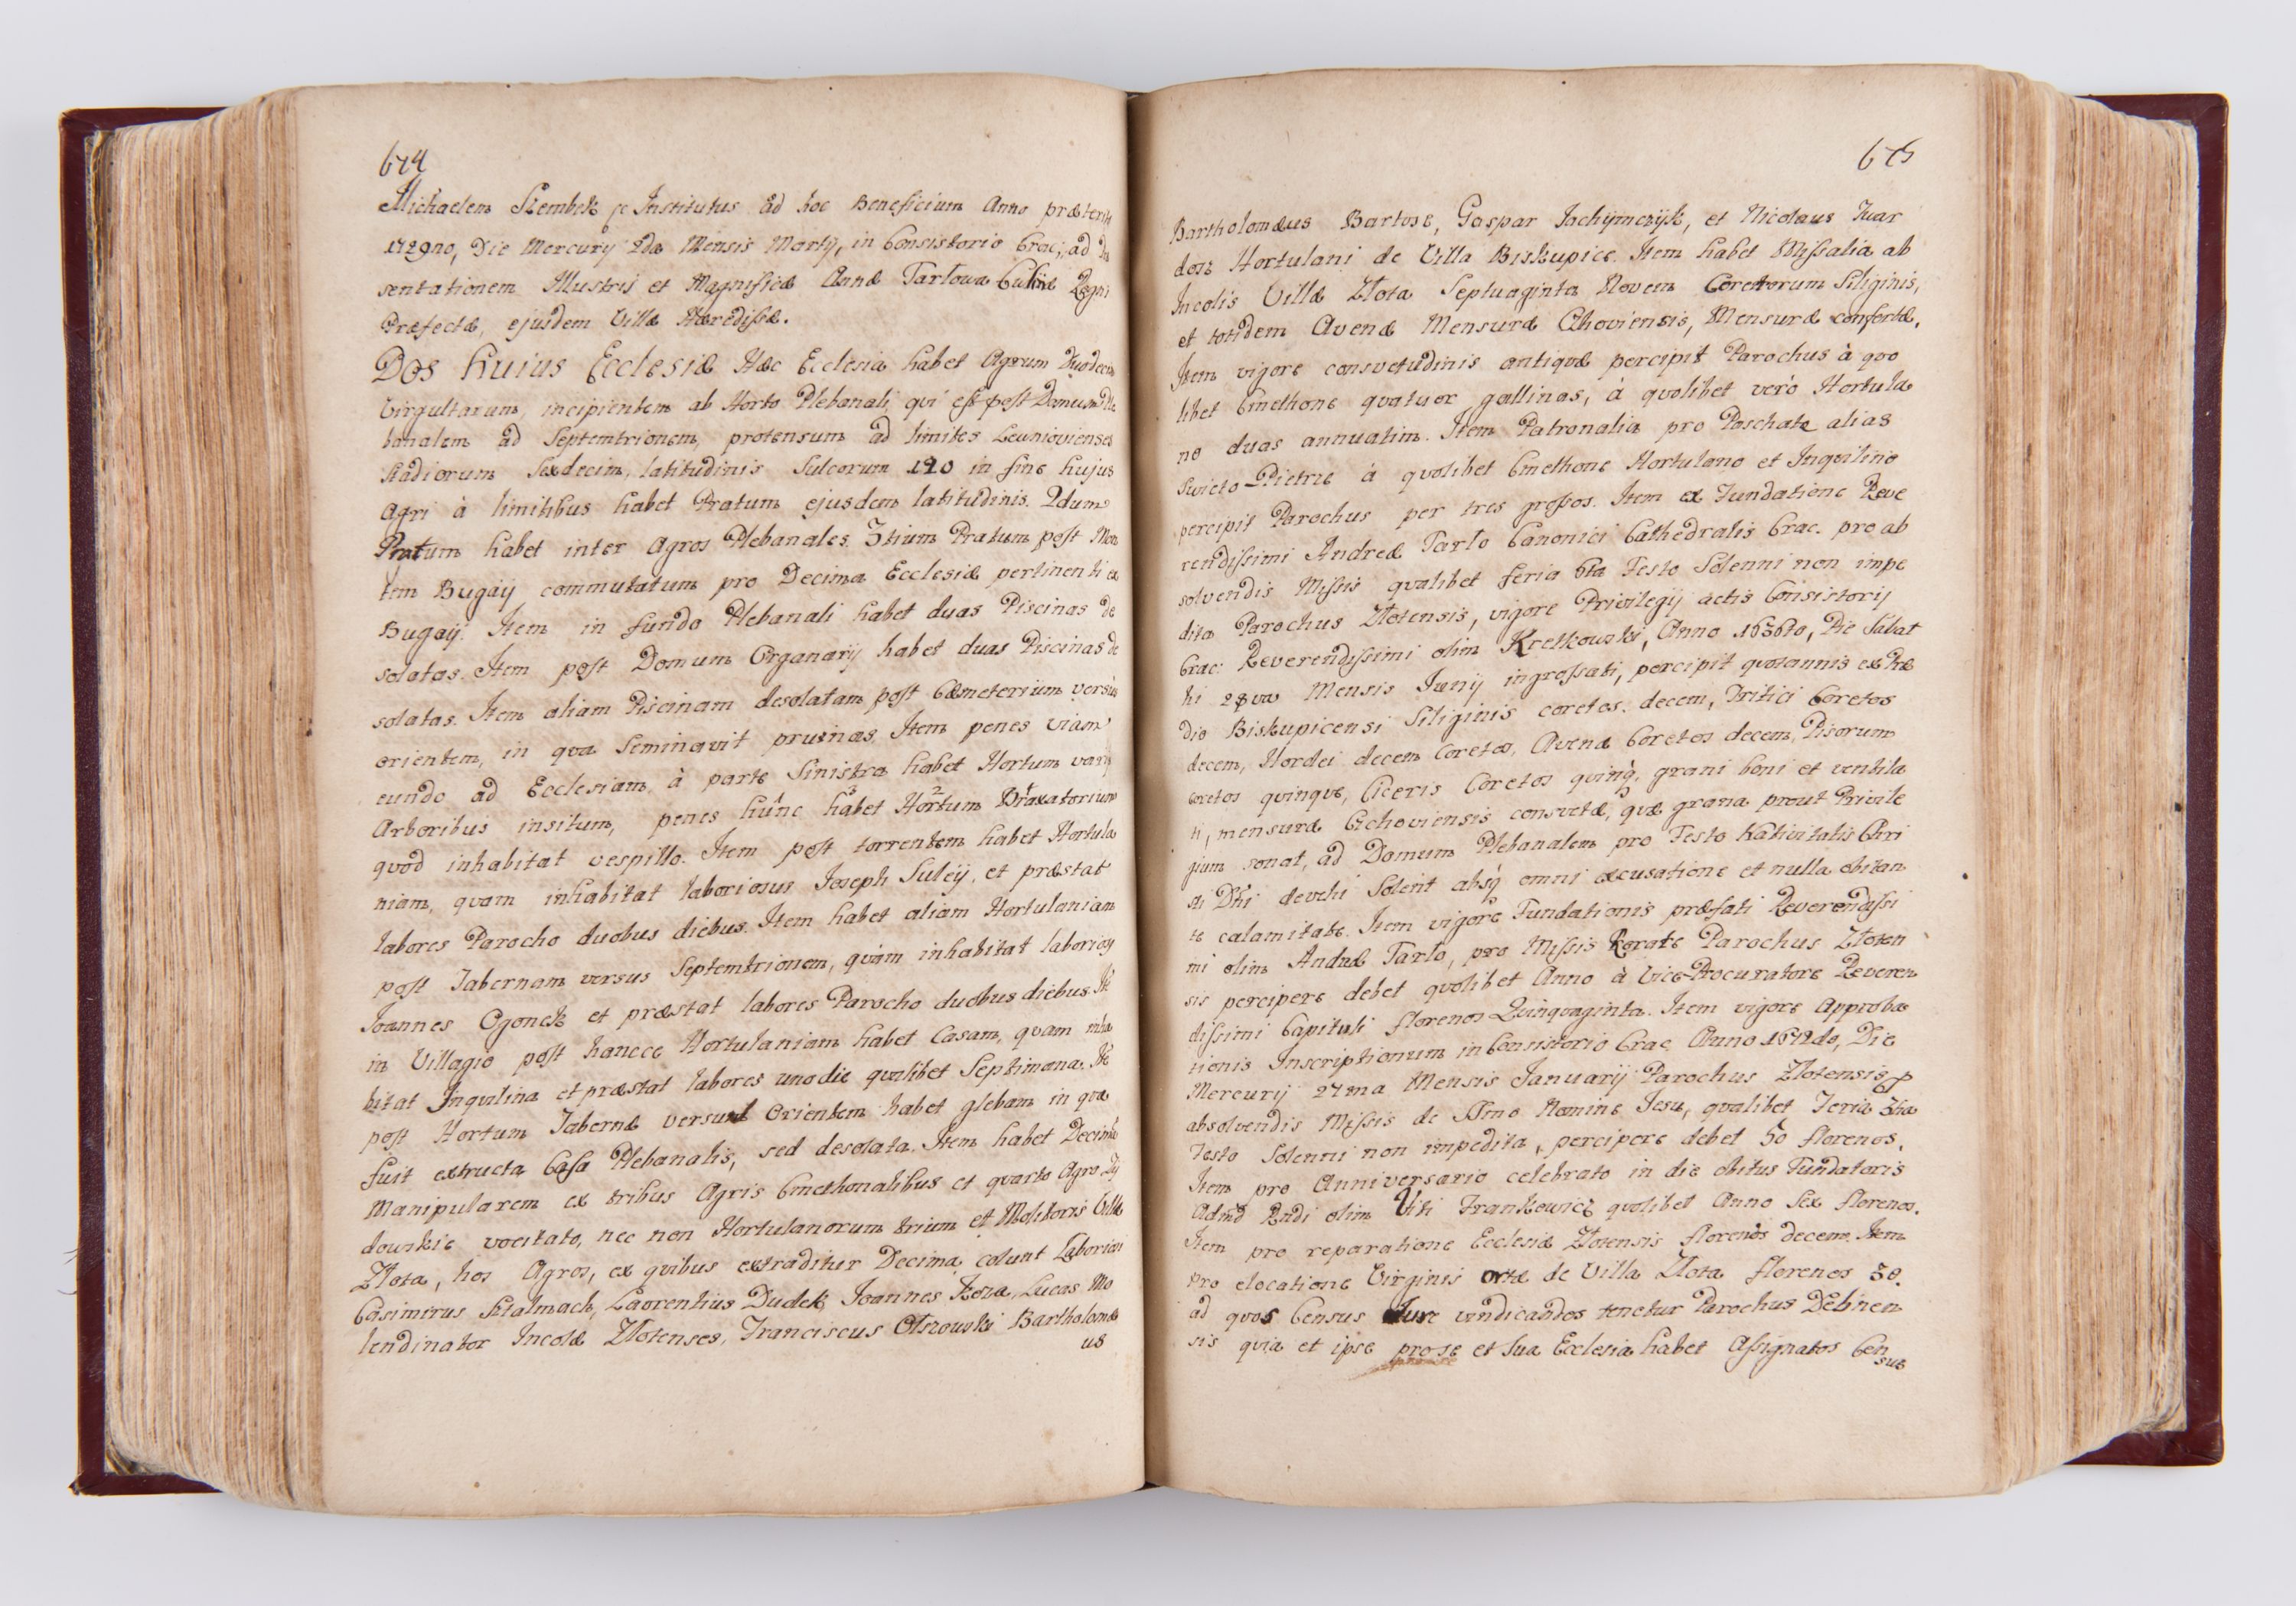 674
Michaelem Szembek sc Institutus ad hoc Beneficium Anno præterit
1729no, Die Mercurij 2da Mensis Martij, in Consistorio Crac: ad
sentationem Illustris et Magnificæ Annæ Tarłowa Culinæ Regni
Præfectæ, ejusdem Villæ Hæredissæ.
Dos huius Ecclesiæ Hæc Ecclesia habet Agrum Duodecim
Virgultarum, incipientem ab Horto Plebanali, qui est post Domum Ple
banalem ad Septemtrionem, protensum ad limites Leuniovienses
stadiorum Sexdecim, latitudinis Sulcorum 120 in fine hujus
Agri à limitibus habet Pratum ejusdem latitudinis. 2dum
Pratum habet inter Agros Plebanales. 3tium Pratum post Mon
tem Bugaij commutatum pro Decima Ecclesiæ pertinenti ex
Bugaij. Item in fundo Plebanali habet duas Piscinas de
solatas. Item post Domum Organarij habet duas Piscinas de
solatas. Item aliam Piscinam desolatam post Cæmeterium versùs
orientem, in qva Seminavit pruinas. Item penes viam
eundo ad Ecclesiam, à parte Sinistra habet Hortum varijs
Arboribus insitum, penes hunc habet Hortum Braxatorium
qvod inhabitat vespillo. Item post torrentem habet Hortula
niam, qvam inhabitat laboriosus Joseph Suleij, et præstat
labores Parocho duobus diebus. Item habet aliam Hortulaniam
post Tabernam versus Septemtrionem, qvàm inhabitat laborios
Joannes Ogonek et præstat labores Parocho duobus diebus. Ite
in Villagio post hancce Hortulaniam habet Casam, qvam inha
bitat Inqvilina et præstat labores uno die qvalibet Septimana. Ite
post Hortum Tabernæ versus Orientem habet glebam in qva
fuit extructa Casa Plebanalis, sed desolata. Item habet Decimam
Manipularem ex tribus Agris Cmethonalibus et qvarto Agro Zy
dowskie vocitato, nec non Hortulanorum trium et Molitoris Villæ
Złota, hos Agros, ex qvibus extraditur Decima, colunt Laboriosi
Casimirus Stalmach, Laorentius Dudek, Joannes Koza, Lucas Mo
lendinator Incolæ Złotenses, Franciscus Olszowski Bartholomæ
us
675
Bartholomæus Bartosz, Gaspar Jachijmczijk, et Nicolaus Twar
dosz Hortulani de Villa Biskupice. Item habet Missalia ab
Incolis Villæ Złota Septuaginta Novem Coretorum Siliginis,
et totidem Avenæ Mensuræ Cchoviensis, Mensuræ confertæ.
Item vigore consvetudinis antiqvæ percipit Parochus à qvo
libet Cmethone qvatuor gallinas, à qvolibet verò Hortula
no duas annuatim. Item Patronalia pro Paschate alias
Swieto-Pietrze à qvolibet Cmethone Hortulano et Inqvilino
percipit Parochus per tres grossos. Item ex Fundatione Reve
rendissimi Andreæ Tarło Canonici Cathedralis Crac. pro ab
solvendis Missis qvalibet feria 6ta Festo Solenni non impe
dita Parochus Złotensis, vigore Privilegij actis Consistorij
Crac: Reverendissimi olim Kretkowski, Anno 1636to, Die Sabat
hi 28va Mensis Junij ingrossati, percipit qvotannis ex Præ
dio Biskupicensi Siliginis coretos decem, Tritici Coretos
decem, Hordei decem Coretos, Avenæ Coretos decem, Pisorum
coretos quinque, Ciceris Coretos qvinq, grani boni et ventila
ti, mensuræ Cchoviensis consvetæ, qvæ grana prout Privile
gium sonat, ad Domum Plebanalem pro Festo Nativitatis Chri
sti Dni devehi Solent absq omni excusatione et nulla obstan
te calamitate. Item vigore Fundationis præfati Reverendissi
mi olim Andreæ Tarło, pro Missis Rorate Parochus Złoten
sis percipere debet qvolibet Anno à Vice-Procuratore Reveren
dissimi Capituli florenos Qvinqvaginta. Item vigore Approba
tionis Inscriptionum in Consistorio Crac. Anno 1672do, Die
Mercurij 27ma Mensis Januarij Parochus Złotensis p
absolvendis Missis de SSmo Nomine Jesu, qvalibet Feria 3tia
Festo Solenni non impedita, percipere debet 50 florenos.
Item pro Anniversario celebrato in die obitus Fundatoris
Admd Rndi olim Viti Frankowicz qvolibet Anno Sex florenos.
Item pro reparatione Ecclesiæ Złotensis florenos decem. Item
pro elocatione Virginis ortæ de Villa Złota florenos 30.
ad qvos Census Jure vendicandos tenetur Parochus Debnen
sis qvia et ipse pro se et Sua Ecclesia habet Assignatos Cen
sus